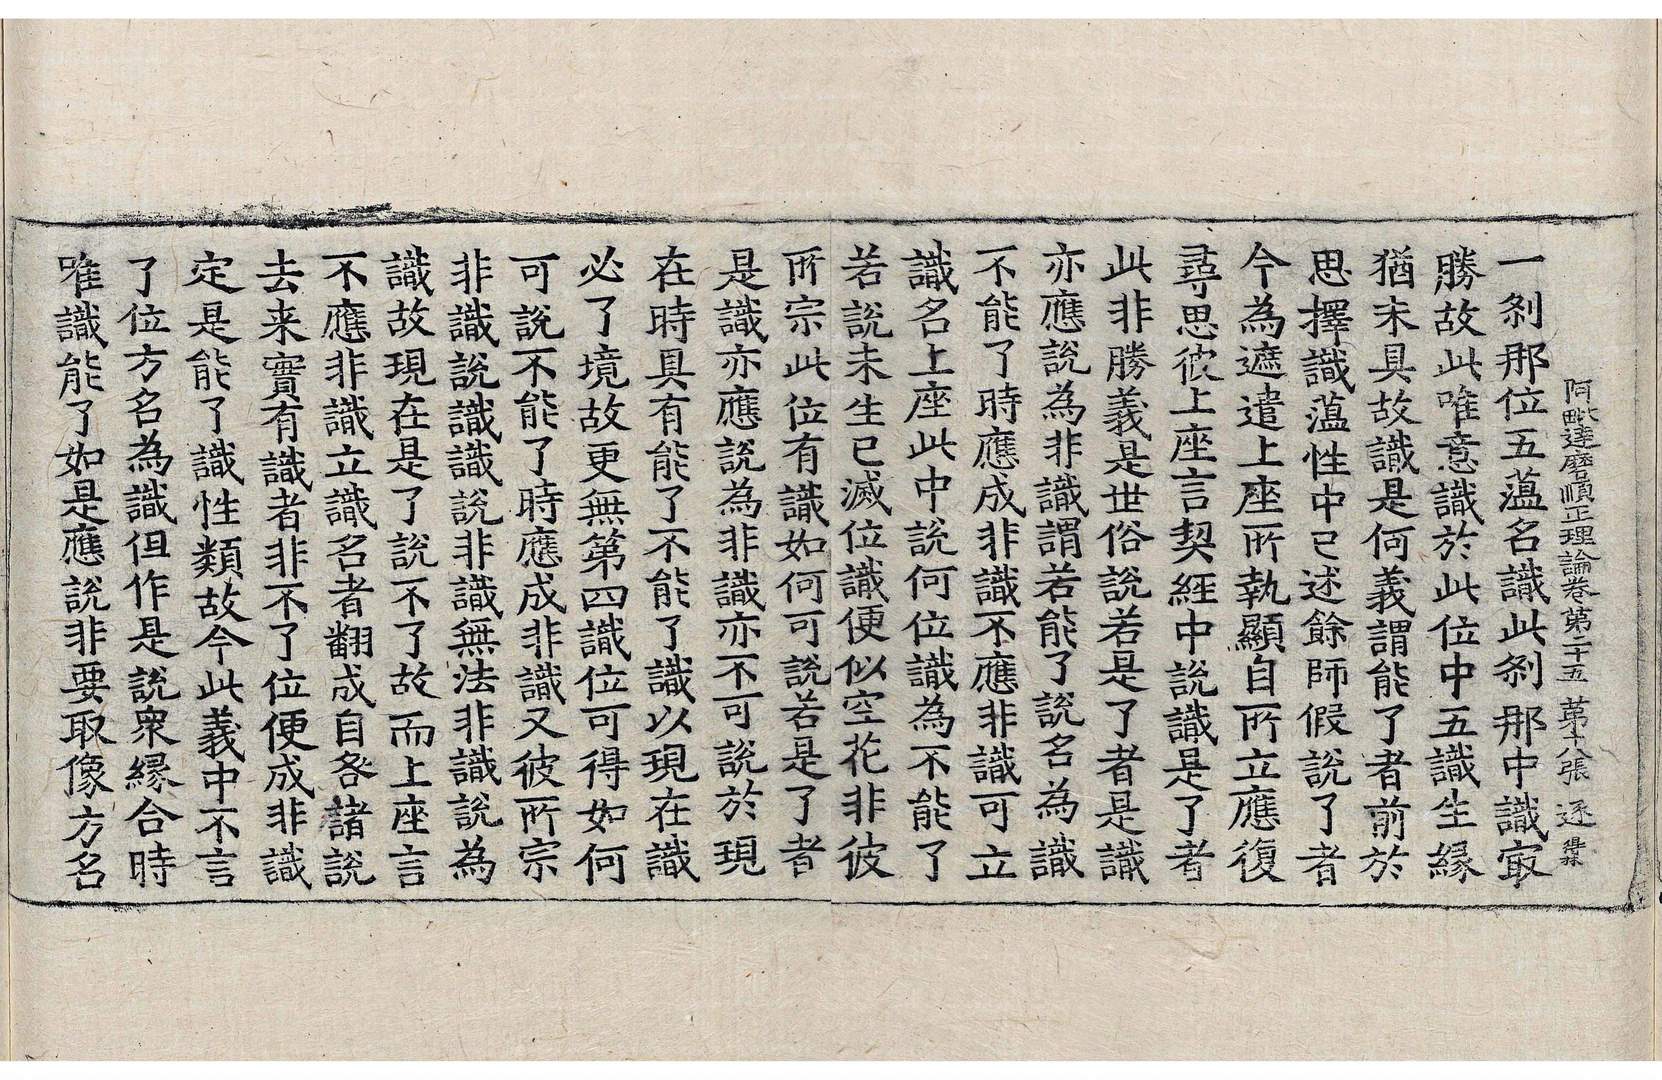 阿毗達磨順正理論卷第二十五 第十八張 逐
一刹那位五薀名識此刹那中識冣
勝故此唯意識於此位中五識生緣
猶未具故識是何義謂能了者前於
思擇識薀性中已述餘師假說了者
今為遮遣上座所執顯自所立應復
尋思彼上座言契經中說識是了者
此非勝義是世俗說若是了者是識
亦應說為非識謂若能了說名為識
不能了時應成非識不應非識可立
識名上座此中說何位識為不能了
若說未生已滅位識便似空花非彼
所宗此位有識如何可說若是了者
是識亦應說為非識亦不可說於現
在時具有能了不能了識以現在識
必了境故更無第四識位可得如何
可說不能了時應成非識又彼所宗
非識說識識說非識無法非識說為
識故現在是了說不了故而上座言
不應非識立識名者翻成自咎諸說
去来實有識者非不了位便成非識
定是能了識性類故今此義中不言
了位方名為識但作是說衆緣合時
唯識能了如是應說非要取像方名